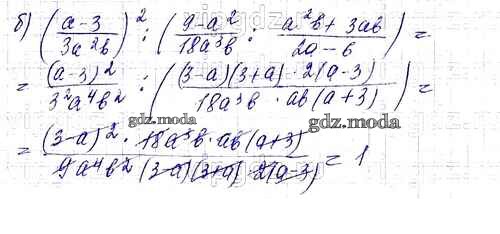 б) ((a-3)/(3a²b))² : ((9-a²)/(18a³b) : (a²b+3ab)/(2a-6)) =
= (a-3)²/(3²a⁴b²) : ((3-a)(3+a)·2(a-3)/(18a³b · ab(a+3))) =
gdz.moda
gdz.moda
= (3-a)² · 18a³b · ab(a+3)/(9a⁴b²(3-a)(3+a)·2(a-3)) = 1